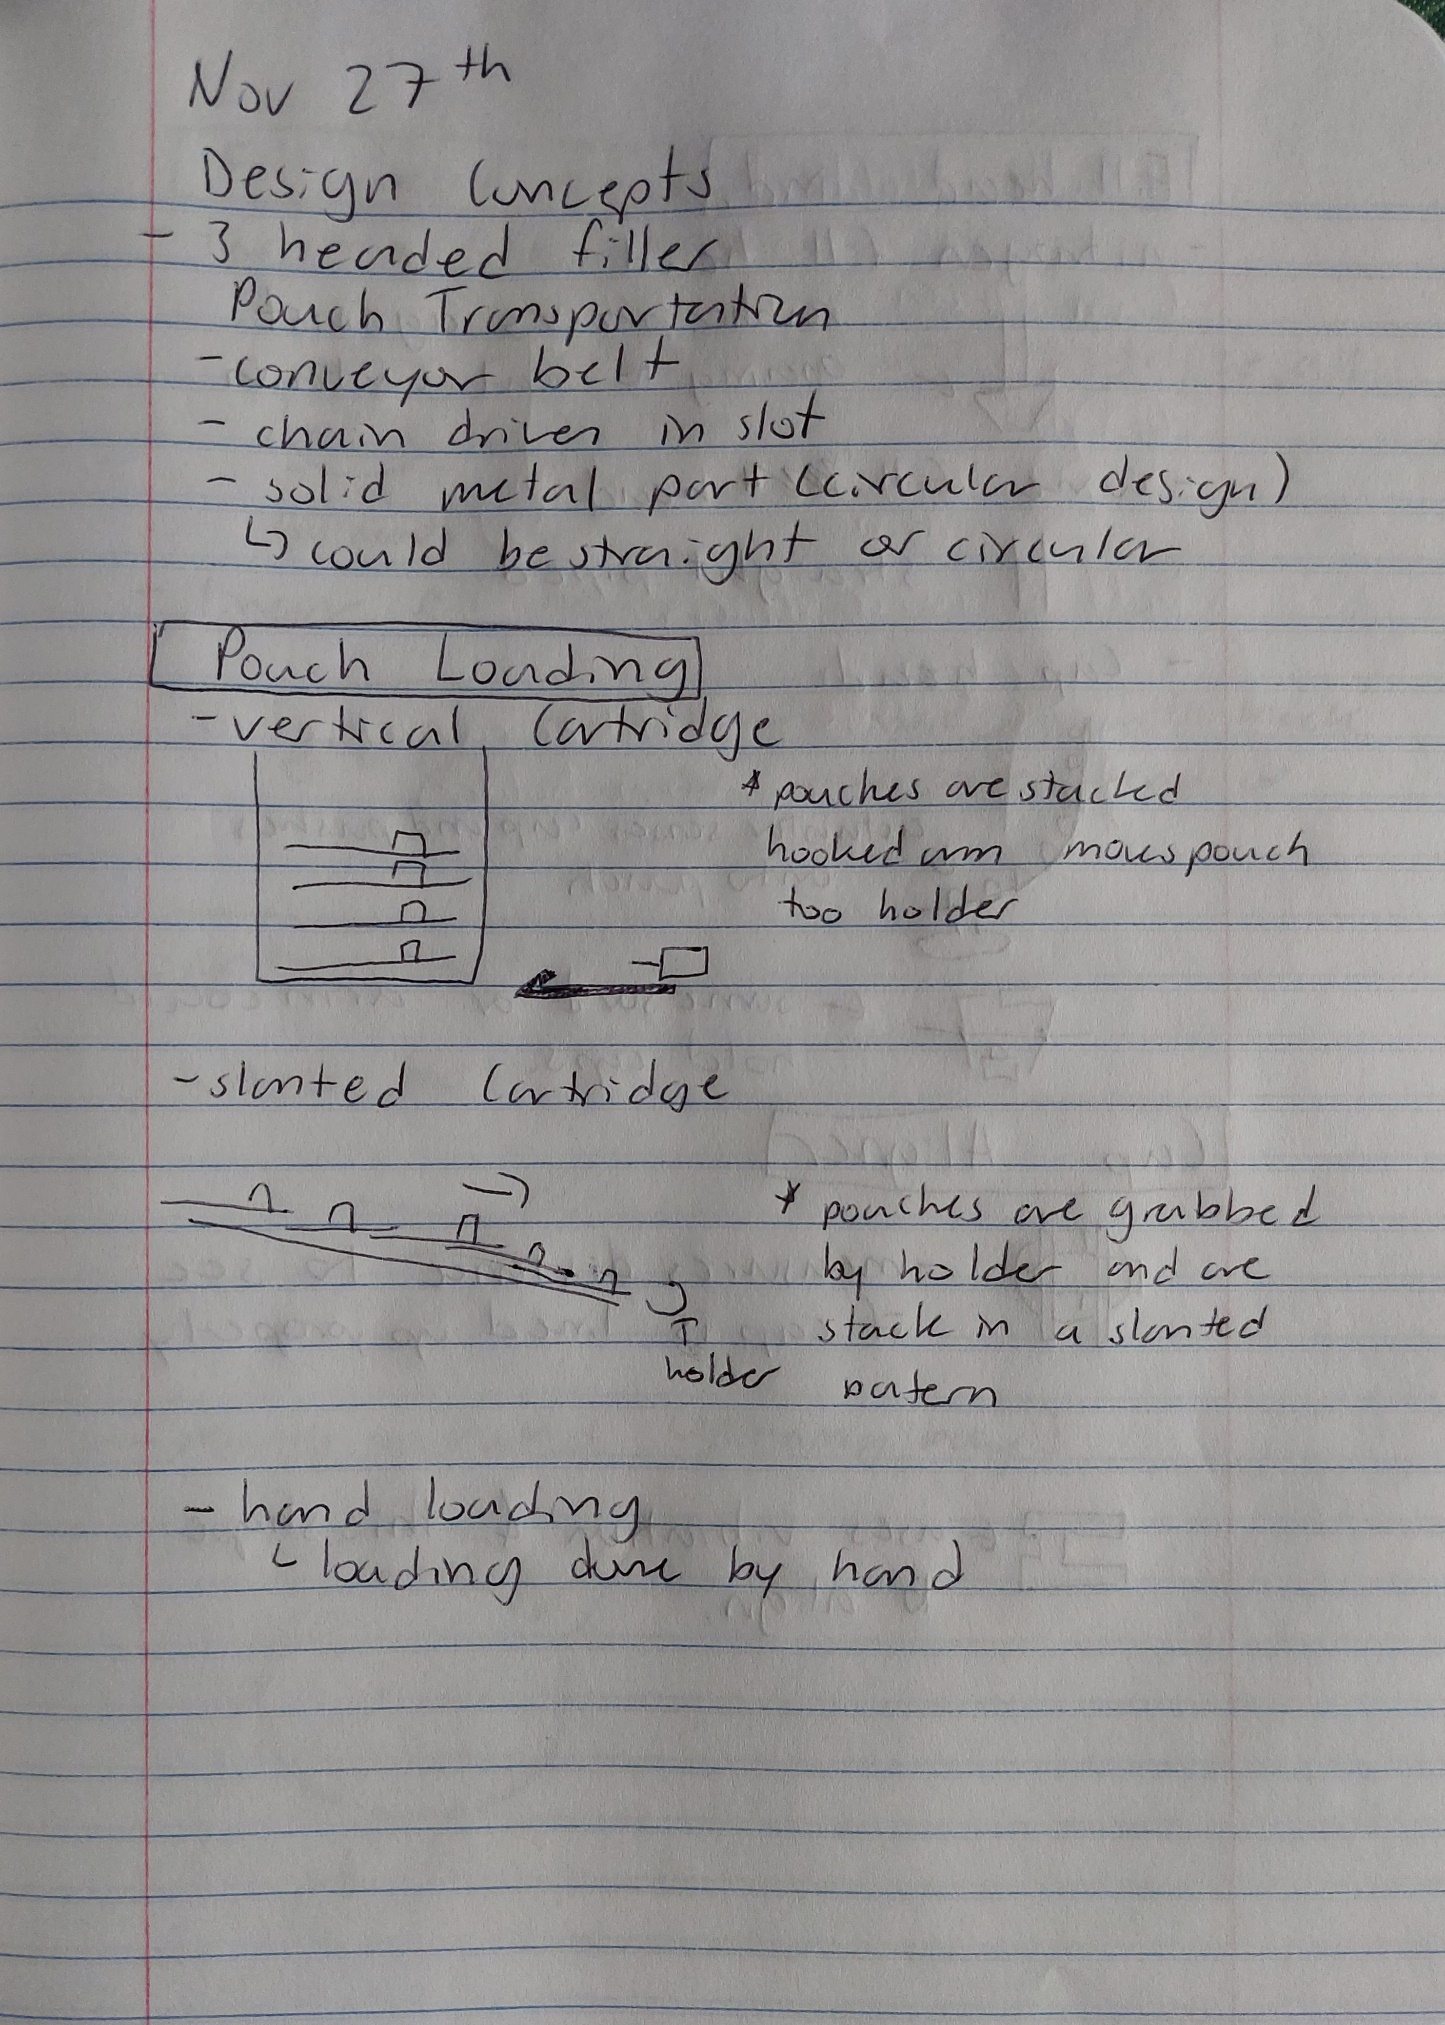 Nov 27th
Design Concepts
- 3 headed filler
Pouch Transportation
- conveyor belt
- chain driven in slot
- solid metal part (circular design)
↳ could be straight or circular
Pouch Loading
- vertical Cartridge
* pouches are stacked
hooked arm moves pouch
too holder
- slanted Cartridge
* pouches are grabbed
by holder and are
stack in a slanted
patern
holder
- hand loading
↳ loading done by hand